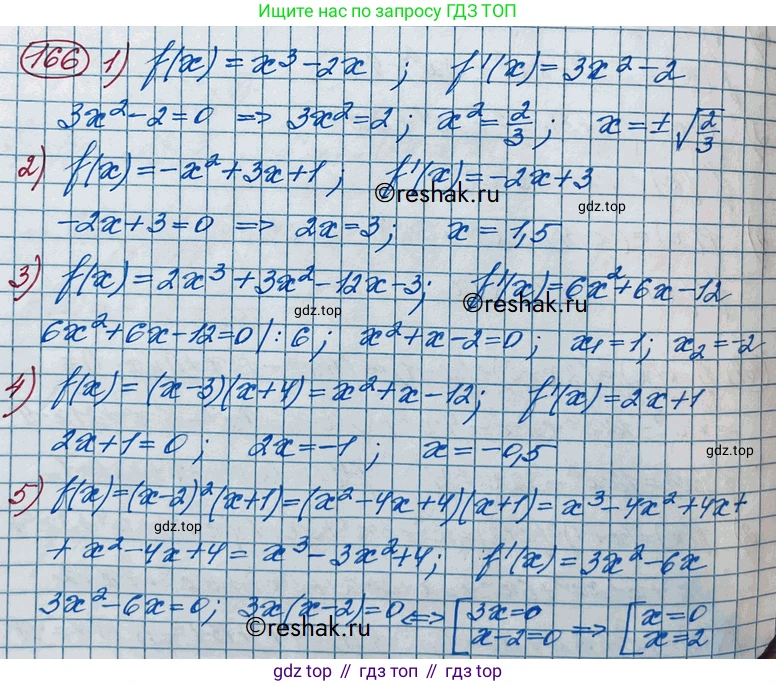 Ищите нас по запросу ГДЗ ТОП
166 1) f(x) = x³ - 2x ; f'(x) = 3x² - 2
3x² - 2 = 0 => 3x² = 2 ; x² = 2/3 ; x = ±√(2/3)
2) f(x) = -x² + 3x + 1 ; f'(x) = -2x + 3
©reshak.ru
gdz.top
-2x + 3 = 0 => 2x = 3 ; x = 1,5
3) f(x) = 2x³ + 3x² - 12x - 3 ; f'(x) = 6x² + 6x - 12
©reshak.ru
gdz.top
6x² + 6x - 12 = 0 |: 6 ; x² + x - 2 = 0 ; x₁ = 1 ; x₂ = -2
4) f(x) = (x - 3)(x + 4) = x² + x - 12 ; f'(x) = 2x + 1
2x + 1 = 0 ; 2x = -1 ; x = -0,5
gdz.top
5) f(x) = (x - 2)²(x + 1) = (x² - 4x + 4)(x + 1) = x³ - 4x² + 4x +
gdz.top
+ x² - 4x + 4 = x³ - 3x² + 4 ; f'(x) = 3x² - 6x
3x² - 6x = 0 ; 3x(x - 2) = 0 <=> [3x = 0 => [x = 0
x - 2 = 0 x = 2
©reshak.ru
gdz.top // гдз топ // gdz.top